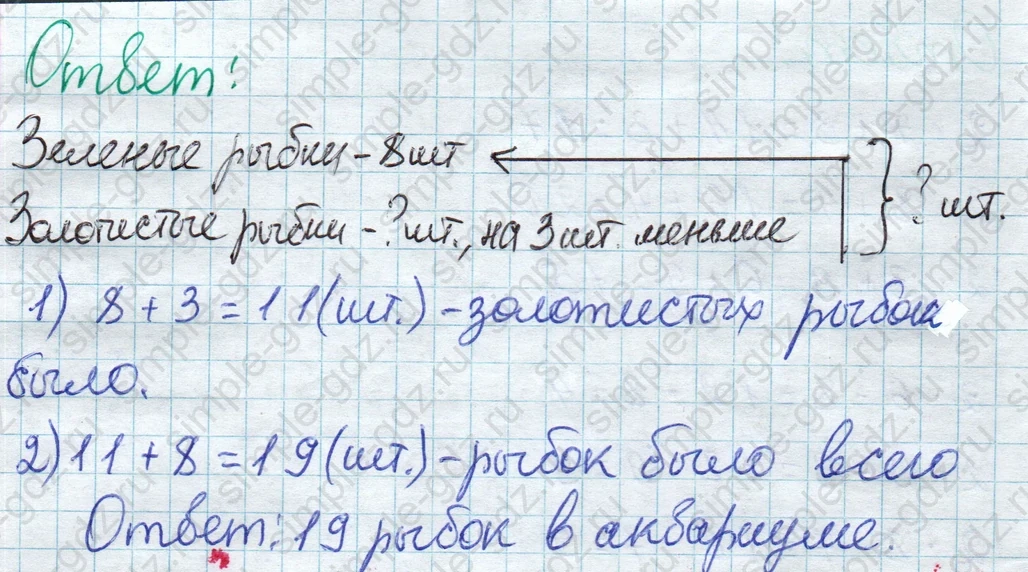 Ответ:
Зеленые рыбки - 8 шт
Золотистые рыбки - ? шт., на 3 шт. меньше
? шт.
1) 8 + 3 = 11 (шт.) - золотистых рыбок
было.
2) 11 + 8 = 19 (шт.) - рыбок было всего
Ответ: 19 рыбок в аквариуме.
simple-gdz.ru